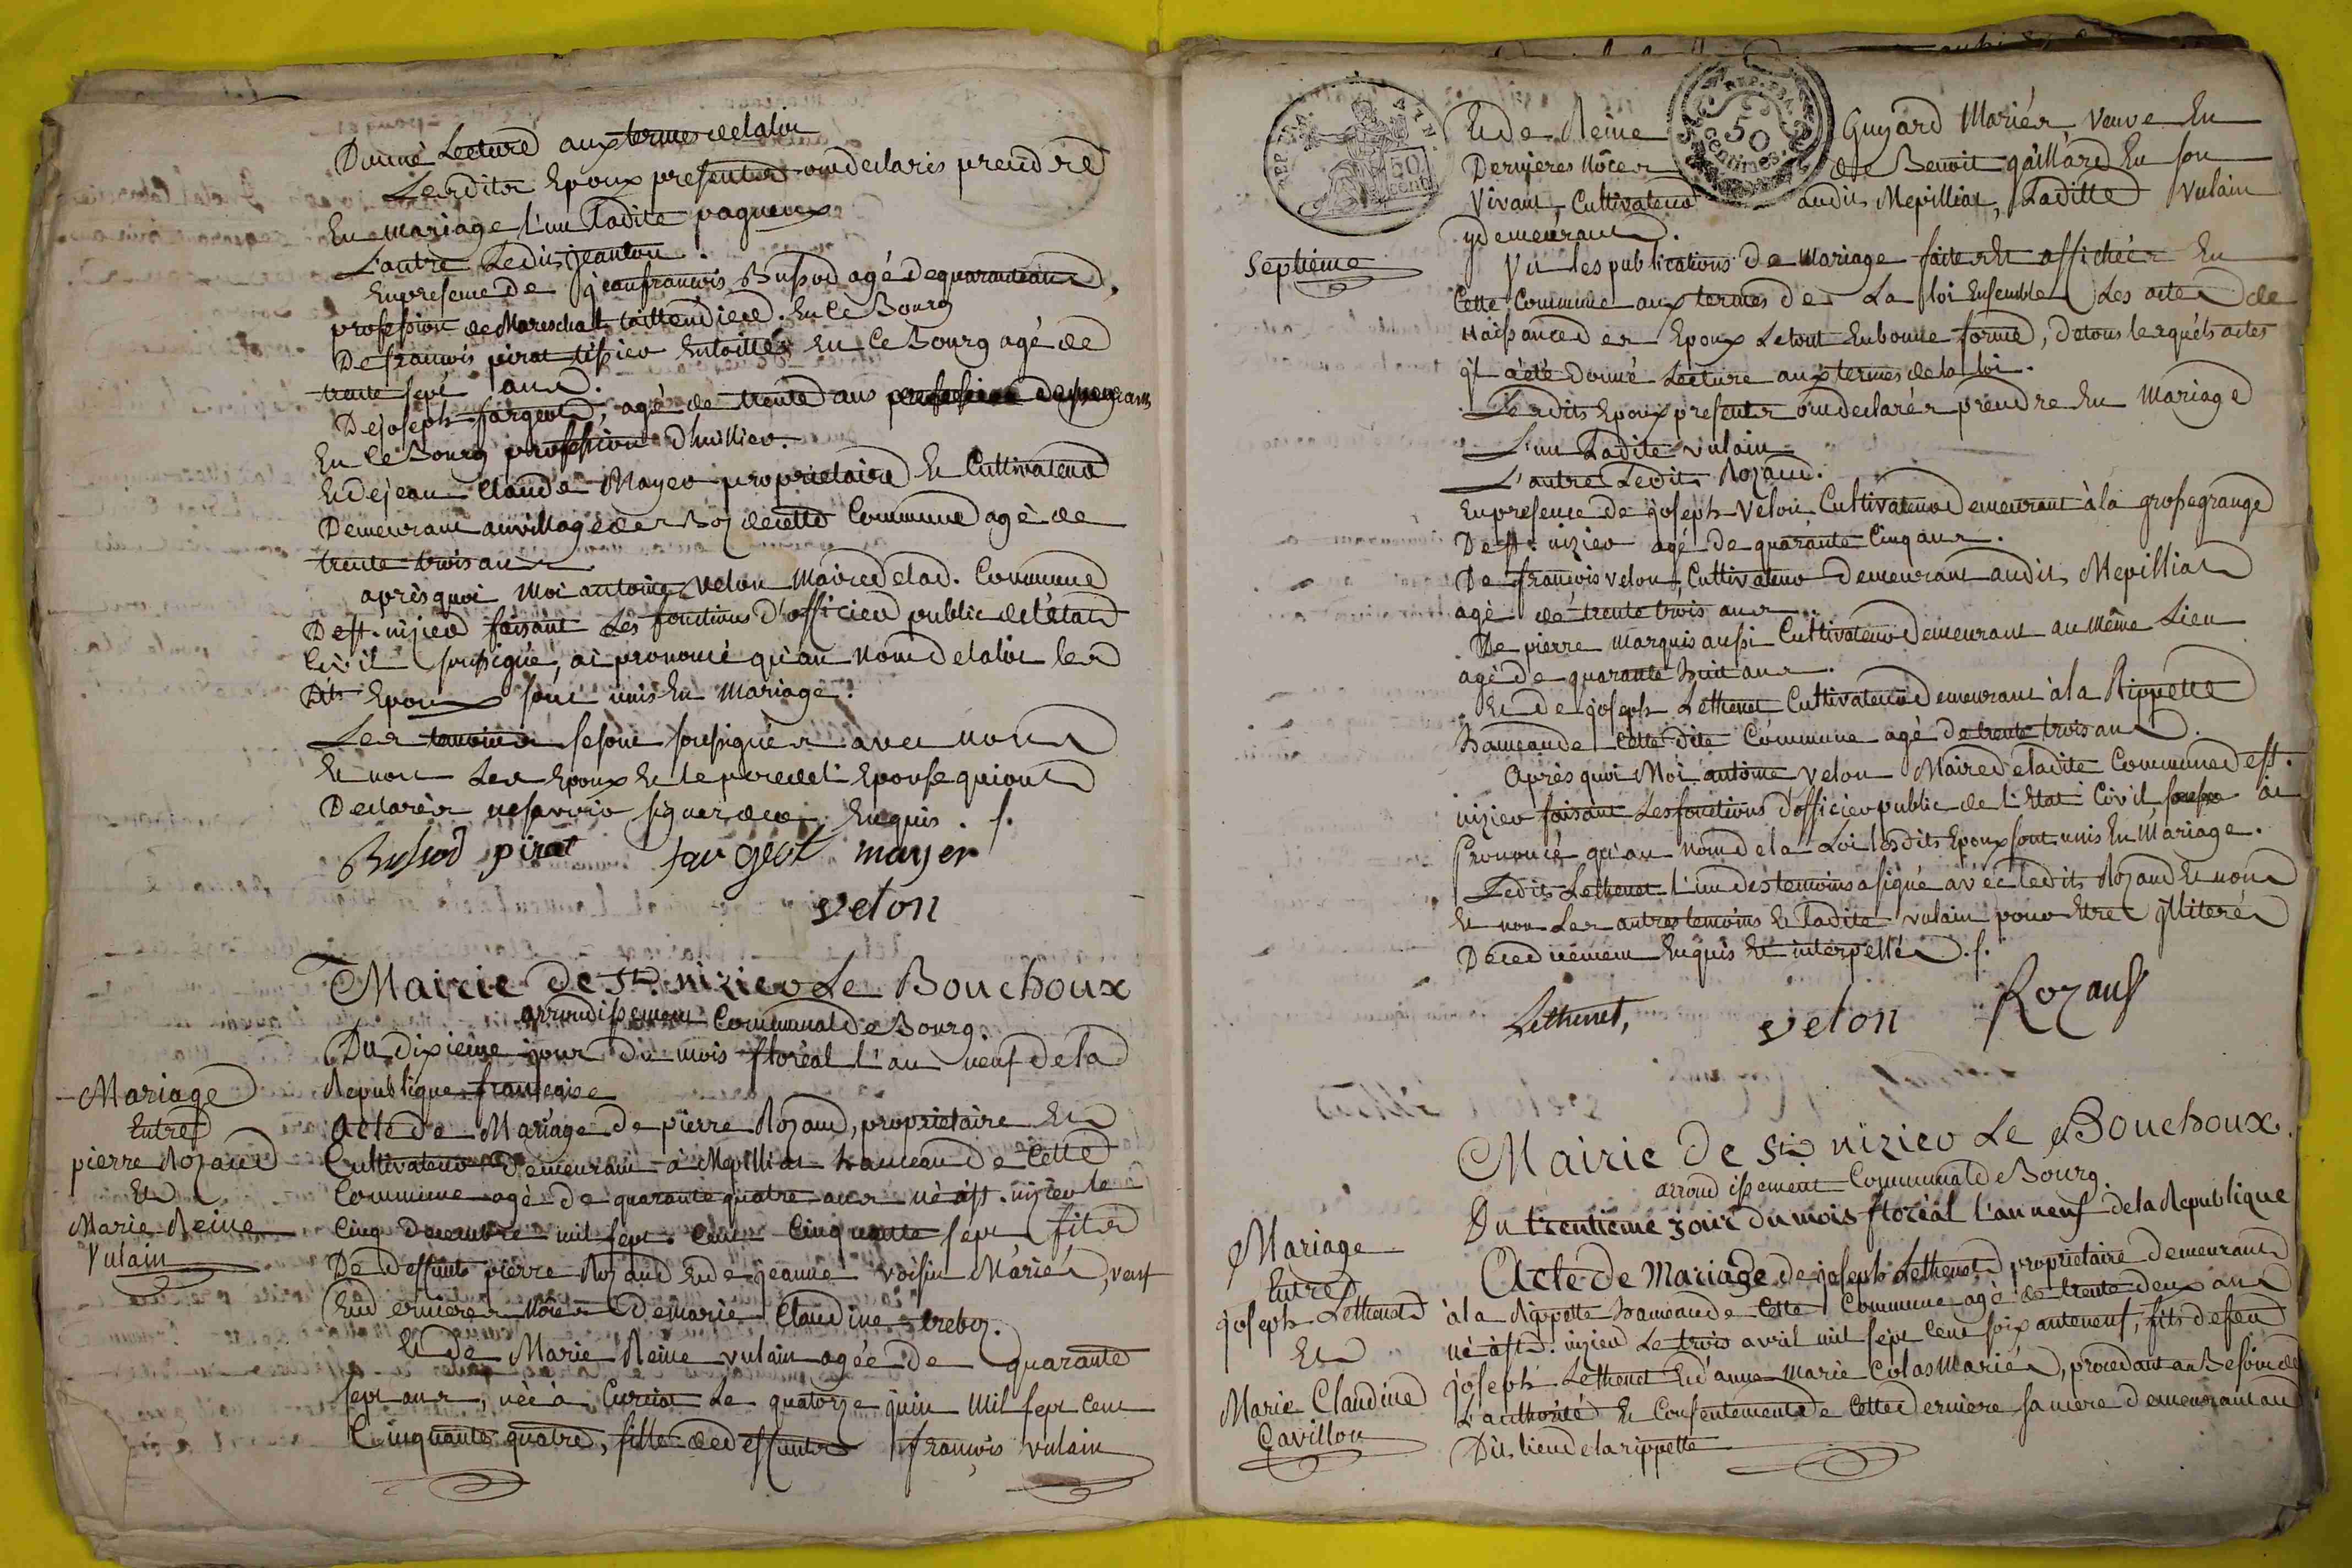 Donné Lecture aux termes de la loi
Lesdits Epoux presents ont declarés prendre
En mariage L'un Ladite paqueux
L'autre Ledit jeanton.
En presence de jean francois Bussod agé de quarante ans,
profession de Mareschal taillendier En ce Bourg
De francois pirat tissier Entoille En ce Bourg agé de
trente sept ans.
De joseph fargeot, agé de trente ans
En ce Bourg profession d'huillier.
Et de jean Claude Mayer proprietaire Et Cultivateur
Demeurant au village des Boz de cette Commune agé de
trente trois ans
après quoi Moi antoine velon Maire de lad. Commune
De st. nizier faisant Les fonctions d'officier public de l'état
Civil soussigné, ai prononcé qu'au Nom de la loi les
Dits Epoux sont unis En Mariage.
Les temoins se sont soussignés avec nous
Et non Les Epoux Et le pere de l'Epouse qui ont
Declarés ne savoir signer de ce Enquis. /.
Bussod pirat fargeot mayer
velon
Mairie de St. nizier Le Bouchoux
arrondissement Communal de Bourg.
Du dixieme jour du mois floréal l'an neuf de la
Republique francaise
Mariage
Entre
pierre Rozand
Et
Marie Reine
Vulain
Acte de Mariage de pierre Rozand, proprietaire Et
Cultivateur Demeurant à Mepilliat hameau de Cette
Commune agé de quarante quatre ans né à st. nizier le
Cinq Decembre mil sept Cent Cinquante sept fils
De Deffunts pierre Rozand Et de jeanne voisin Mariés, veuf
En dernieres Nôces de marie Claudine treboz.
Et de Marie Reine vulain agée de quarante
sept ans, née à Curciat Le quatorze juin Mil sept Cent
Cinquante quatre, fille de deffunts francois vulain
REP. FRA. 50 cent.
REP. FRA. 50 Centimes.
Et de Reine Guyard Mariés Veuve En
Dernieres Nôces de Benoit gaillard En son
Vivant Cultivateur audit Mepilliat, Ladite Vulain
y demeurant.
Septieme
Vu les publications de Mariage faites Et affichées En
Cette Commune aux termes de La loi Ensemble Les actes de
Naissance des Epoux Le tout En bonne forme, de tous lesquels actes
il a été Donné Lecture aux termes de la loi.
Lesdits Epoux presents ont declarés prendre En Mariage
L'un Ladite vulain
L'autre Ledit Rozand.
En presence de joseph Velon Cultivateur Demeurant à la grosse grange
De st. nizier agé de quarante Cinq ans.
De francois velon, Cultivateur Demeurant audit Mepilliat
agé de trente trois ans.
De pierre marquis aussi Cultivateur Demeurant au même Lieu
agé de quarante huit ans.
Et de joseph Lethenet Cultivateur Demeurant à la Rippette
hameau de Cette dite Commune agé de trente trois ans.
Après quoi Moi antoine velon Maire de ladite Commune de st.
nizier faisant Les fonctions d'officier public de l'Etat Civil ai
Prononcé qu'au nom de la Loi lesdits Epoux sont unis En Mariage.
Ledit Lethenet l'un des temoins a signé avec ledit Rozand Et nous
Et non Les autres temoins Et Ladite vulain pour Etre illiterés
Enquis Et interpellés. /.
Lethenet, velon Rozand
Mairie De St. nizier Le Bouchoux.
arrondissement Communal de Bourg.
Du trentieme jour du mois floréal L'an neuf de la Republique
Mariage
Entre
joseph Lethenet
Et
Marie Claudine
Cavillon
Acte de Mariage de joseph Lethenet proprietaire demeurant
à la Rippette hameau de Cette Commune agé de trente deux ans
né à st. nizier Le trois avril mil sept Cent soixante neuf, fils de feu
joseph Lethenet Et d'anne Marie Colas Mariés, procedant au Besoin de
L'authorité Et Consentement de Cette Derniere sa mere demeurant au
Dit lieu de la rippette